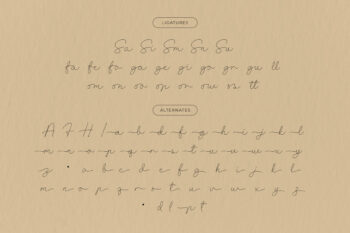 LIGATURES
Sa Si Sm Sn Su
fa fe fo ga ge gi go gr gu ll
om on oo op or ow rs tt
ALTERNATES
A F H l a b d f g h i j k l
m n o p q r s t u v w x y
z a b c d e f g h i j k l
m n o p q r s t u v w x y z
d l p t